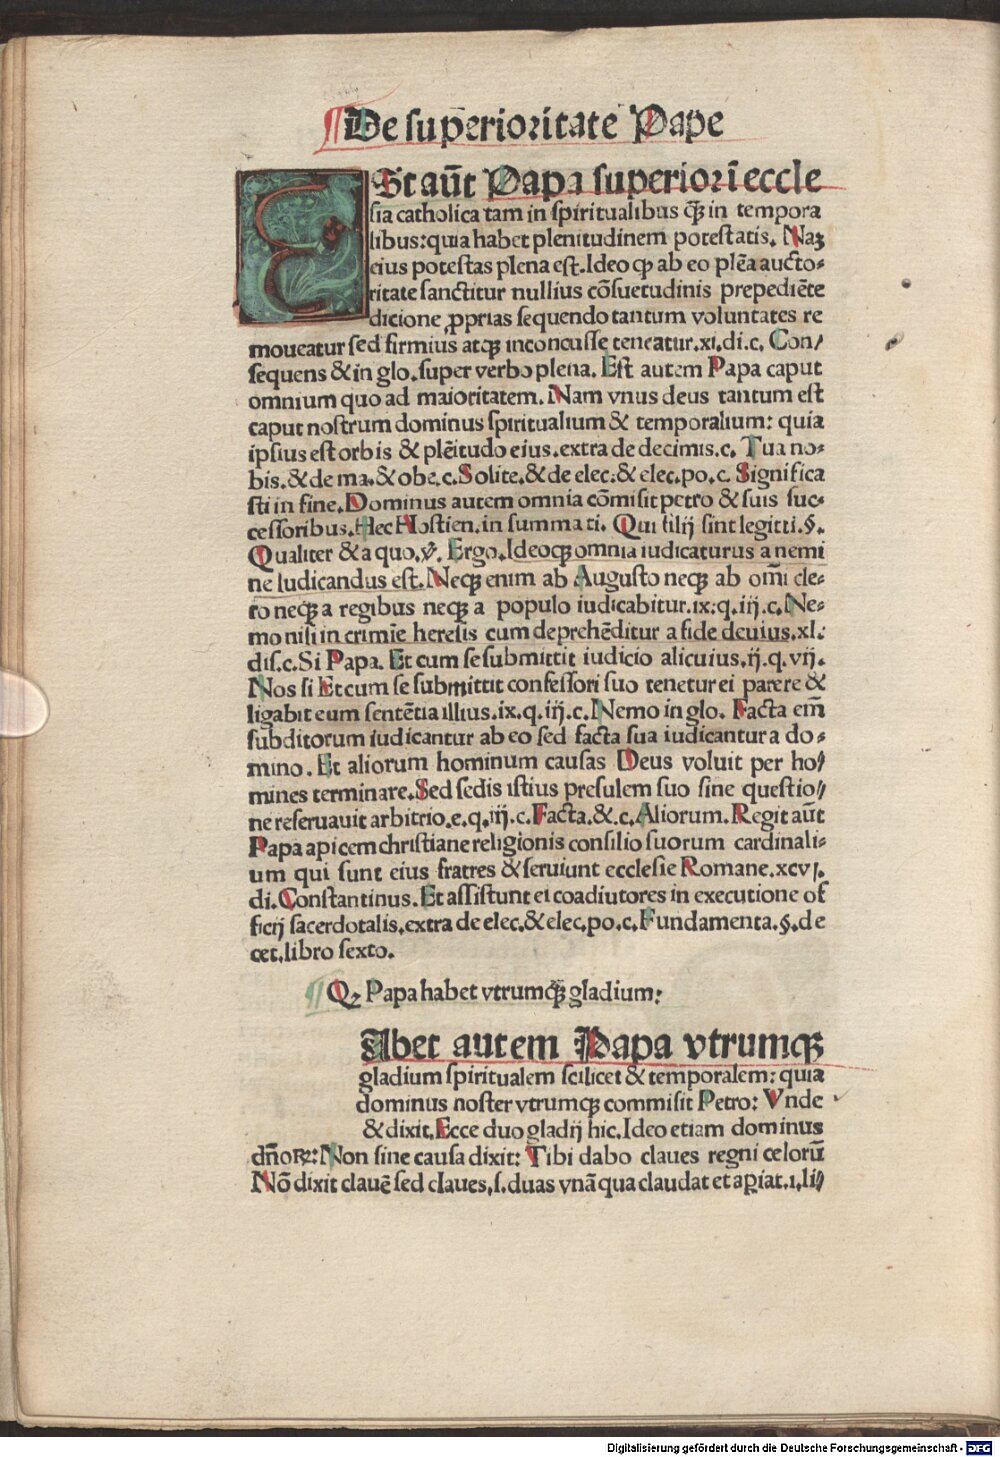 ¶De superioritate Pape
ESt aūt Papa superior ī eccle
sia catholica tam in spiritualibus qꝫ in tempora
libus: quia habet plenitudinem potestatis. Naꝫ
eius potestas plena est. Ideo qꝫ ab eo plēa aucto⸗
ritate sanctitur nullius cōsuetudinis prepediēte
dicione ꝓprias sequendo tantum voluntates re
moueatur sed firmius atqꝫ inconcusse teneatur.xi.di.c. Con/
sequens & in glo. super verbo plena. Est autem Papa caput
omnium quo ad maioritatem. Nam vnus deus tantum est
caput nostrum dominus spiritualium & temporalium: quia
ipsius est orbis & plēitudo eius. extra de decimis.c. Tua no⸗
bis. & de ma. & obe.c. Solite. & de elec: & elec.po.c. Significa
sti in fine. Dominus autem omnia cōmisit petro & suis suc⸗
cessoribus. Hec Hostien. in summa ti. Qui filij sint legitti.§.
Qualiter & a quo.℣. Ergo. Ideoqꝫ omnia iudicaturus a nemi
ne Iudicandus est. Neqꝫ enim ab Augusto neqꝫ ab om̄i cle⸗
ro neqꝫ a regibus neqꝫ a populo iudicabitur.ix:q.iij.c. Ne⸗
mo nisi in crimīe heresis cum deprehēditur a fide deuius.xl:
dis.c. Si Papa. Et cum se submittit iudicio alicuius.ij.q.vij.
Nos si Et cum se submittit confessori suo tenetur ei parere &
ligabit eum sentētia illius.ix.q.iij.c. Nemo in glo. Facta em̄
subditorum iudicantur ab eo sed facta sua iudicantur a do⸗
mino. Et aliorum hominum causas Deus voluit per ho//
mines terminare. Sed sedis istius presulem suo sine questio//
ne reseruauit arbitrio.e.q.iij.c. Facta. &.c. Aliorum. Regit aūt
Papa apicem christiane religionis consilio suorum cardinali⸗
um qui sunt eius fratres & seruiunt ecclesie Romane.xcvj.
di. Constantinus. Et assistunt ei coadiutores in executione of
ficij sacerdotalis. extra de elec. & elec.po.c. Fundamenta.§. de
cet. libro sexto.
¶ Qꝫ Papa habet vtrumqꝫ gladium:
Abet autem Papa vtrumqꝫ
gladium spiritualem scilicet & temporalem: quia
dominus noster vtrumqꝫ commisit Petro: Vnde
& dixit. Ecce duo gladij hic. Ideo etiam dominus
dn̄oꝝ: Non sine causa dixit: Tibi dabo claues regni celorū
Nō dixit clauē sed claues. s. duas vnā qua claudat et aꝑiat.1.li//
Digitalisierung gefördert durch die Deutsche Forschungsgemeinschaft - DFG